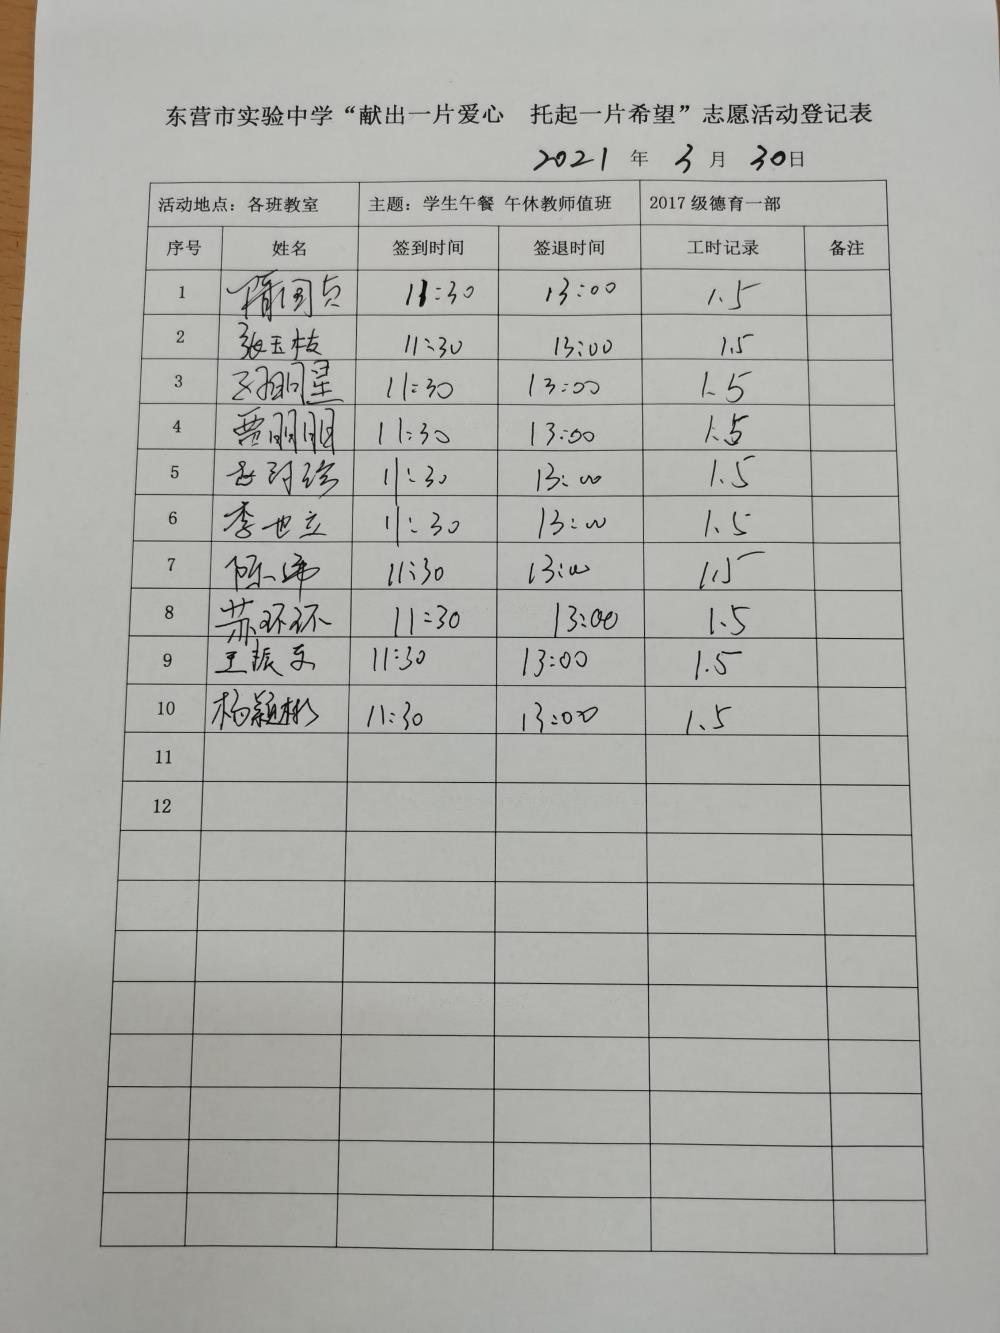 东营市实验中学“献出一片爱心 托起一片希望”志愿活动登记表
2021 年 3 月 30日
活动地点：各班教室 主题：学生午餐 午休教师值班 2017 级德育一部
序号 姓名 签到时间 签退时间 工时记录 备注
1 隋国贞 11:30 13:00 1.5
2 张玉枝 11:30 13:00 1.5
3 孙明星 11:30 13:00 1.5
4 贾明明 11:30 13:00 1.5
5 11:30 13:00 1.5
6 李世立 11:30 13:00 1.5
7 11:30 13:00 1.5
8 苏环环 11:30 13:00 1.5
9 王振东 11:30 13:00 1.5
10 杨颖彬 11:30 13:00 1.5
11
12